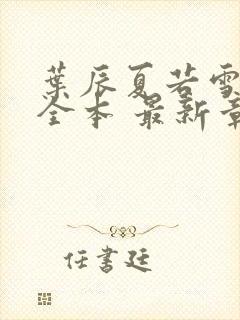 葉辰夏若雪
全本 最新章
任書廷